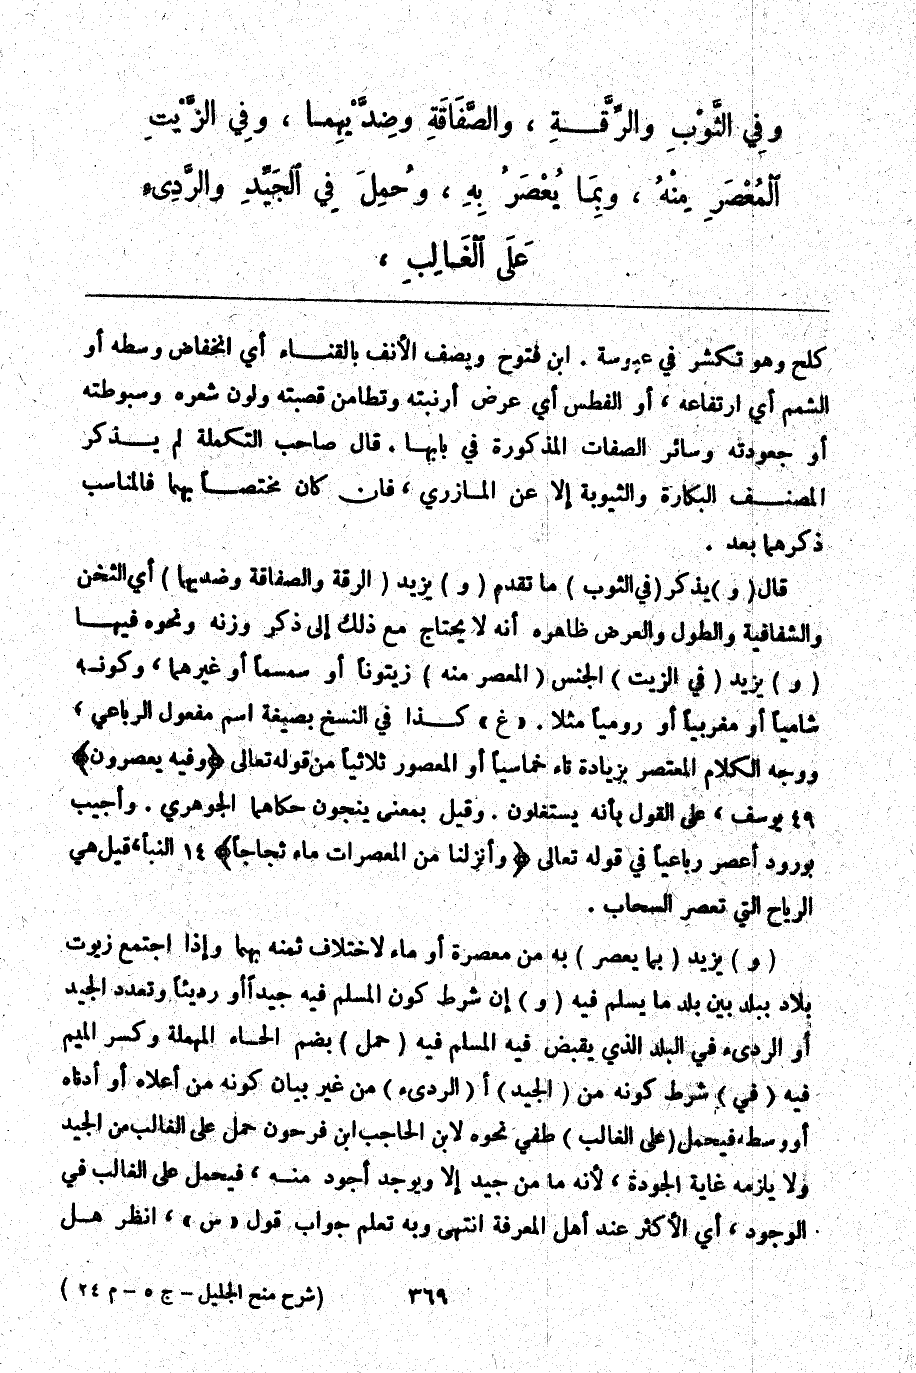 وفِي الثَّوْبِ والرِّقَّةِ ، والصَّفَاقَةِ وضِدَّيْهِما ، وفِي الزَّيْتِ
ٱلْمُعْصَرِ مِنْهُ ، وبِمَا يُعْصَرُ بِهِ ، وحُمِلَ فِي ٱلْجَيِّدِ والرَّدِىءِ
عَلَى ٱلْغَالِبِ ،
كلح وهو تكشر في عبوسة . ابن فتوح ويصف الأنف بالقناء أي انخفاض وسطه أو
الشمم أي ارتفاعه ، أو الفطس أي عرض أرنبته وتطامن قصبته ولون شعره وسبوطته
أو جعودته وسائر الصفات المذكورة في بابها . قال صاحب التكملة لم يذكر
المصنف البكارة والثيوبة إلا عن المازري ، فان كان مختصاً بهما فالمناسب
ذكرهما بعد .
قال ( و ) يذكر ( في الثوب ) ما تقدم ( و ) يزيد ( الرقة والصفاقة وضديهما ) أي الثخن
والشفافية والطول والعرض ظاهره أنه لا يحتاج مع ذلك إلى ذكر وزنه ونحوه فيها
( و ) يزيد ( في الزيت ) الجنس ( المعصر منه ) زيتوناً أو سمسماً أو غيرهما ، وكونه
شامياً أو مغربياً أو رومياً مثلا . « غ » كذا في النسخ بصيغة اسم مفعول الرباعي ،
ووجه الكلام المعتصر بزيادة تاء خماسياً أو المعصور ثلاثياً من قوله تعالى ﴿ وفيه يعصرون ﴾
٤٩ يوسف ، على القول بأنه يستغلون . وقيل بمعنى ينجون حكاهما الجوهري . وأجيب
بورود أعصر رباعياً في قوله تعالى ﴿ وأنزلنا من المعصرات ماء ثجاجاً ﴾ ١٤ النبأ ، قيل هي
الرياح التي تعصر السحاب .
( و ) يزيد ( بما يعصر ) به من معصرة أو ماء لاختلاف ثمنه بهما وإذا اجتمع زيوت
بلاد ببلد بين بلد ما يسلم فيه ( و ) إن شرط كون المسلم فيه جيداً أو رديئاً وتعدد الجيد
أو الردىء في البلد الذي يقبض فيه المسلم فيه ( حمل ) بضم الحاء المهملة وكسر الميم
فيه ( في ) شرط كونه من ( الجيد ) أ ( الردىء ) من غير بيان كونه من أعلاه أو أدناه
أو وسطه فيحمل ( على الغالب ) طفي نحوه لابن الحاجب ابن فرحون حمل على الغالب من الجيد
ولا يلزمه غاية الجودة ، لأنه ما من جيد إلا ويوجد أجود منه ، فيحمل على الغالب في
الوجود ، أي الأكثر عند أهل المعرفة انتهى وبه تعلم جواب قول « س » ، انظر هل
٣٦٩ (شرح منح الجليل – ج ٥ – م ٢٤ )